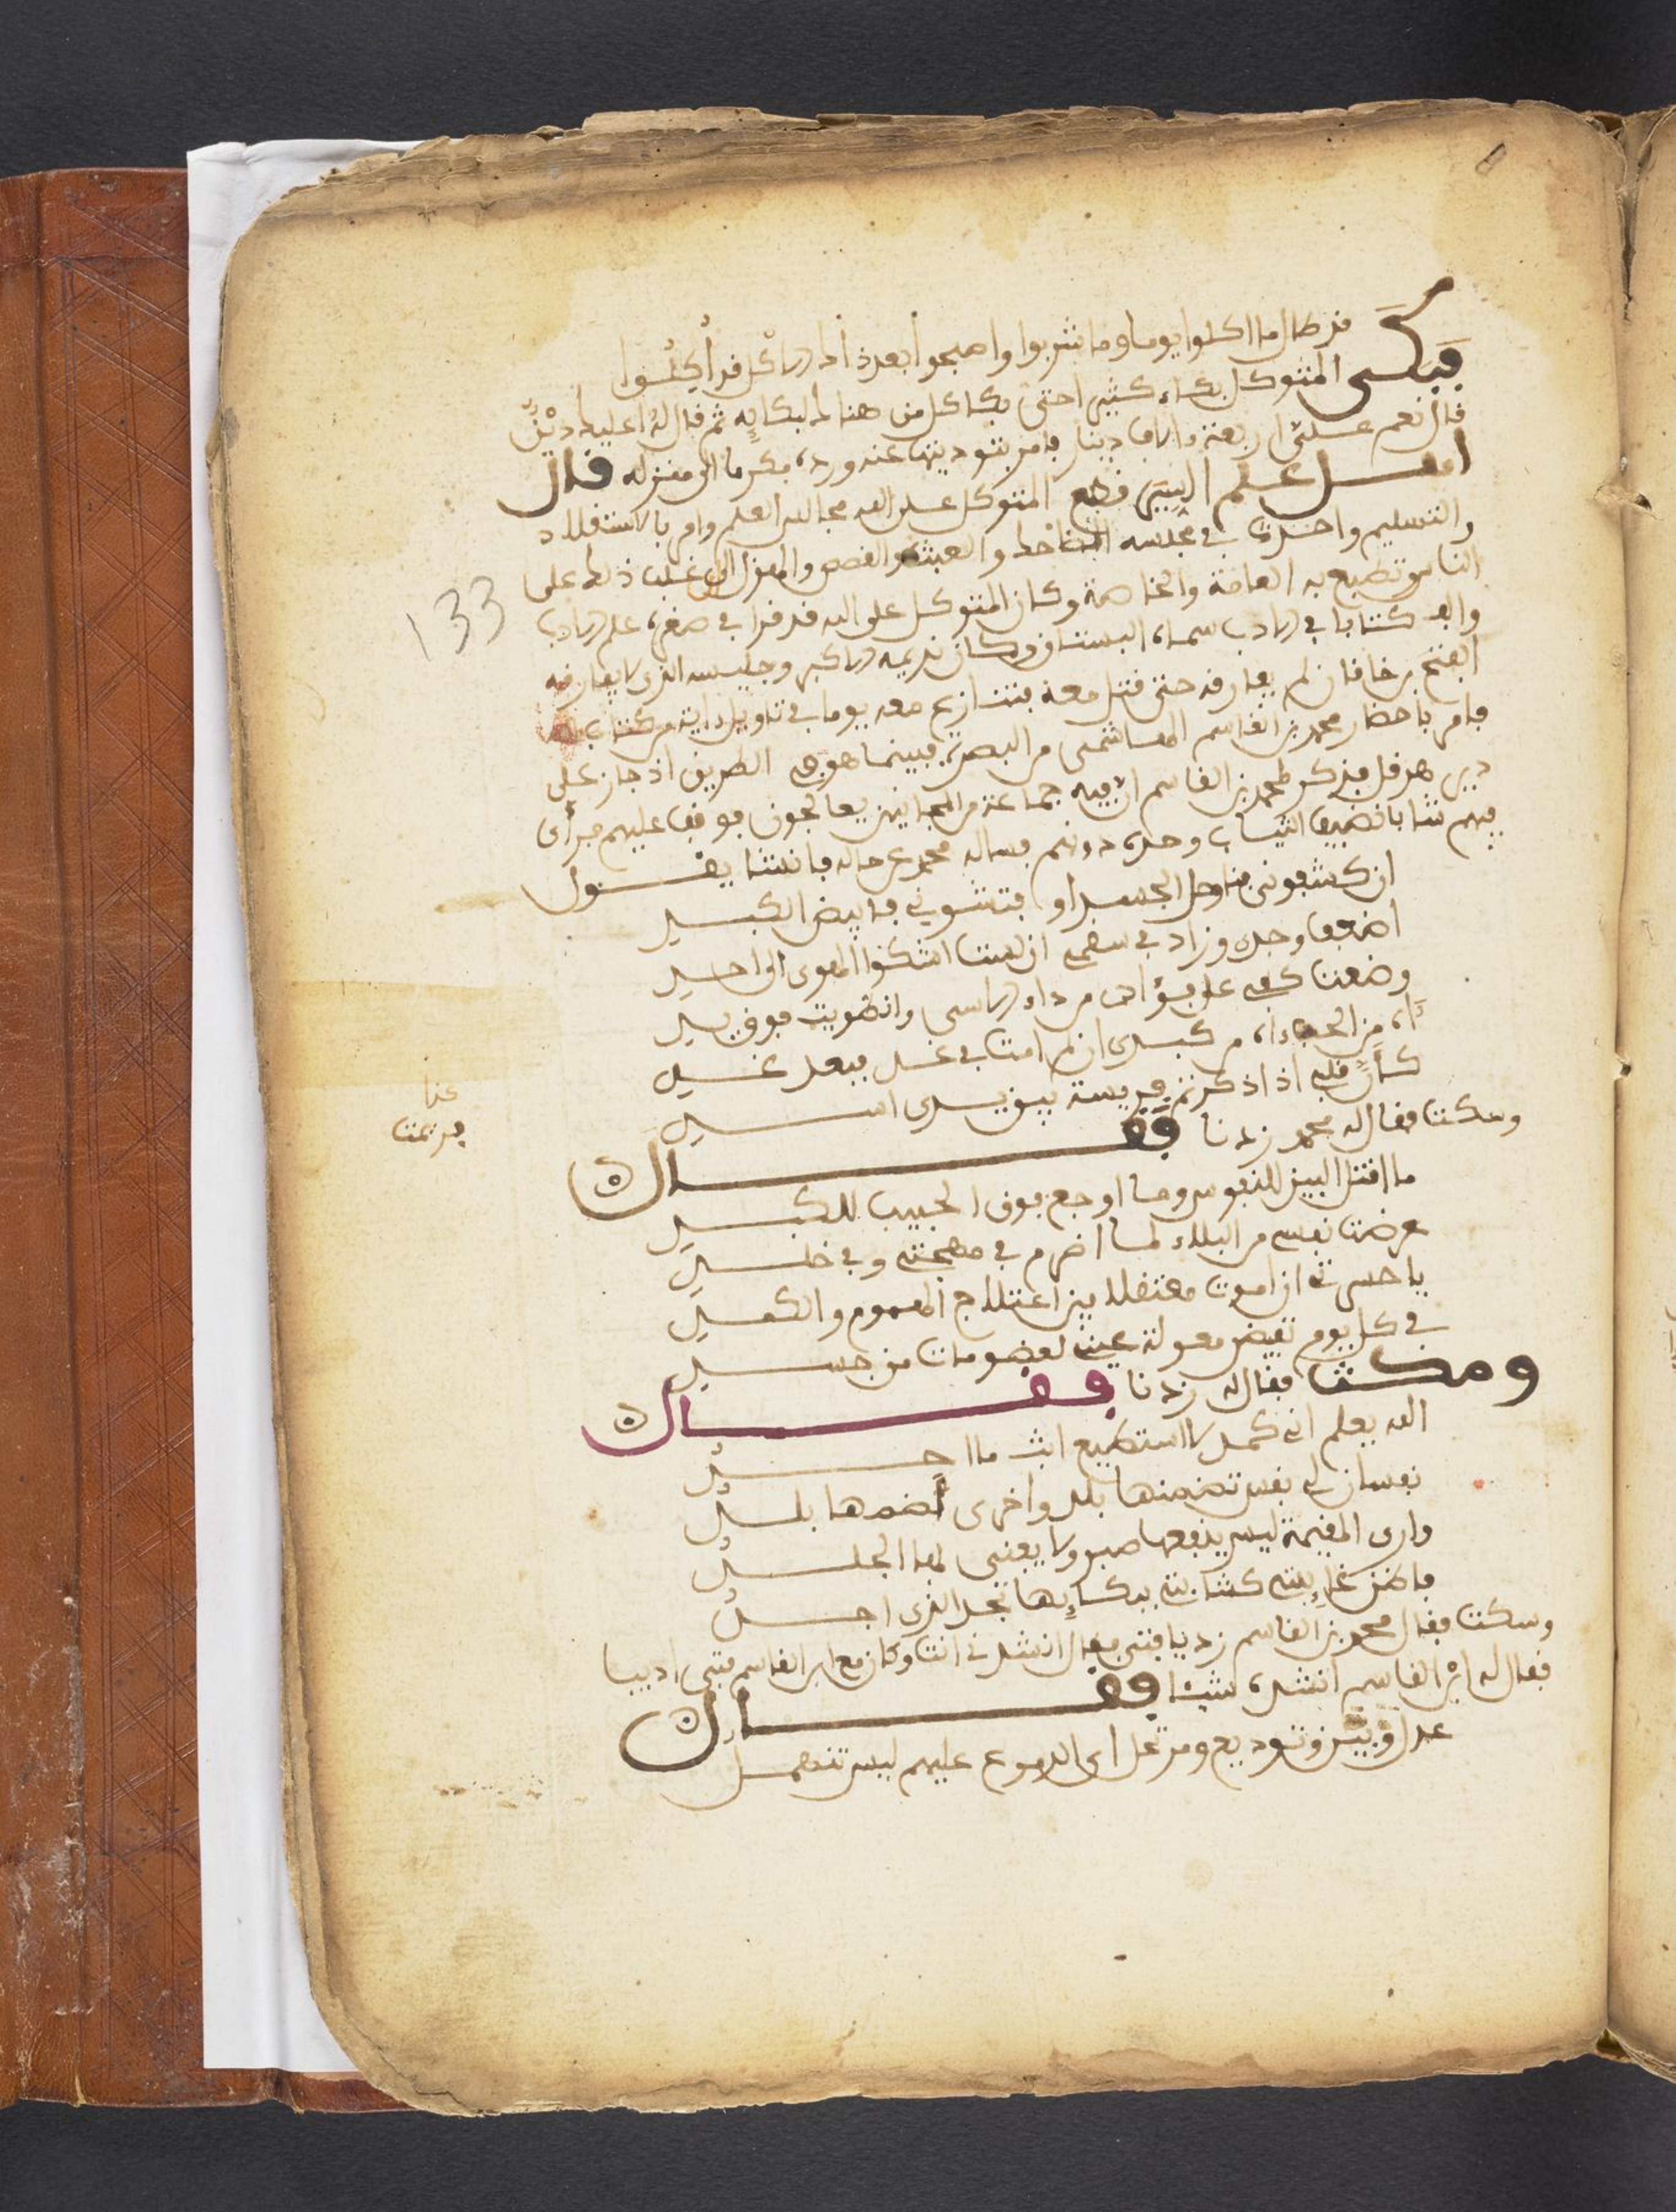 قد طال ما اكلوا يوما وما شربوا واصبحوا بعد ذاك الاكل قد أُكِلُوا
فبكى المتوكل بكاء كثيرا حتى بكا كل من هنالك لبكايه ثم قال له اعليك دين
قال نعم علي اربعة ءالاف دينار فامر بتوديتها عنه ورده مكرما الى منزله قال
اهل علم السير قطع المتوكل على الله مجالس العلم وامر بالاستقلاد
والتسليم واحدث في مجلسه المضاحك والعبث والقصص والهزل الى غلب ذلك على
الناس تطبع به العامة والخاصة وكان المتوكل على الله قد قرا في صغره علم الادب
والف كتابا في الادب سماه البستان وكان نديمه الاكبر وجليسه الذي لا يفارقه
الفتح بن خاقان لم يفارقه حتى قتل معه فتنازع معه يوما في تاويل ءاية من كتاب الله
فامر باحضار محمد بن القاسم الهاشمي من البصرة فبينما هو في الطريق اذ جاز على
دير هرقل فذكر لمحمد بن القاسم ان فيه جماعة من المجانين يعالجون فوقف عليهم فرأى
فيهم شابا نضيف الثياب وحده دونهم فساله محمد عن حاله فانشا يقول
ان كشفوني فناحل الجسد او فتشوني فابيض الكبد
اضعف وجدي وزاد في سقمي ان لست اشكوا الهوى الى احد
وضعت كفي على فؤادي من داء الاسى وانطويت فوق يدي
ءاه من الحب ءاه من كبدي ان لم امت في غد فبعد غد
كأن قلبي اذا ذكرتهم فريسة بين يدي اسد
وسكت فقال له محمد زدنا فقال
ما اقتل البين للنفوس وما اوجع فوق الحبيب للكبد
عرضت نفسي من البلاء لما اضرم في مهجتي وفي خلد
يا حسرتي ان اموت معتقلا بين اعتلاج الهموم والكمد
في كل يوم تفيض معولة عيني لعضو مات من جسد
ومكث فقال له زدنا فقال
الله يعلم انى كمد لا استطيع ابث ما اجد
نفسان لي نفس تضمنها بلد واخرى ضمها بلد
وارى المقيمة ليس ينفعها صبر ولا يغني لها الجلد
فاظن غايبتي كشاهدتي ببكايها تجد الذي اجد
وسكت فقال محمد بن القاسم زد يا فتى فقال انشدني انت وكان مع ابن القاسم فتى اديبا
فقال له ابن القاسم انشده شيئا فقال
عذل وبين وتوديع ومرتحل اي الدموع عليهم ليس تنهمل
133